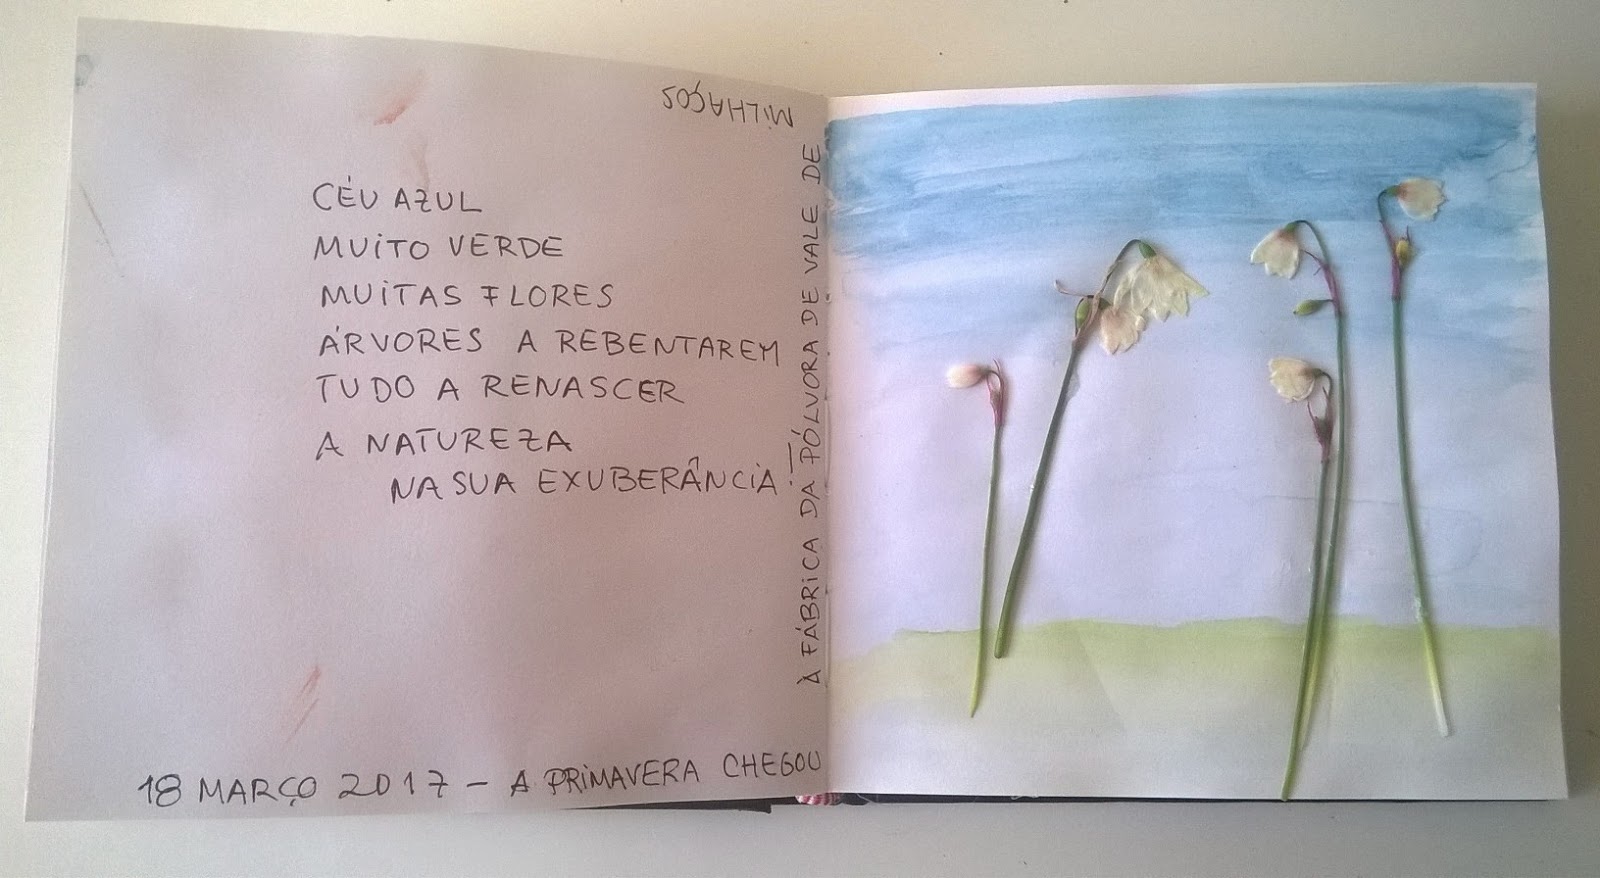 CÉU AZUL
MUITO VERDE
MUITAS FLORES
ÁRVORES A REBENTAREM
TUDO A RENASCER
A NATUREZA
NA SUA EXUBERÂNCIA!
18 MARÇO 2017 - A PRIMAVERA CHEGOU
À FÁBRICA DA PÓLVORA DE VALE DE
MILHAÇOS